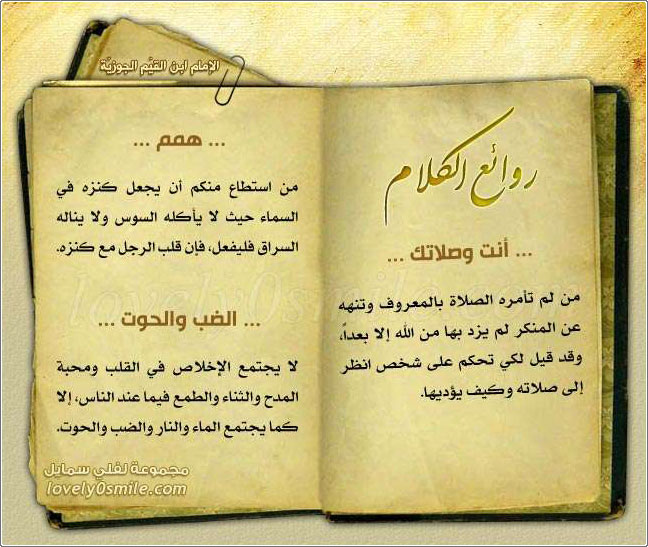 الإمام ابن القيّم الجوزيّة
روائع الكلام
... أنت وصلاتك ...
من لم تأمره الصلاة بالمعروف وتنهه
عن المنكر لم يزد بها من الله إلا بعداً،
وقد قيل لكي تحكم على شخص انظر
إلى صلاته وكيف يؤديها.
... همم ...
من استطاع منكم أن يجعل كنزه في
السماء حيث لا يأكله السوس ولا يناله
السراق فليفعل، فإن قلب الرجل مع كنزه.
... الضب والحوت ...
لا يجتمع الإخلاص في القلب ومحبة
المدح والثناء والطمع فيما عند الناس، إلا
كما يجتمع الماء والنار والضب والحوت.
مجموعة لفلي سمايل
lovely0smile.com
lovely0smile.com